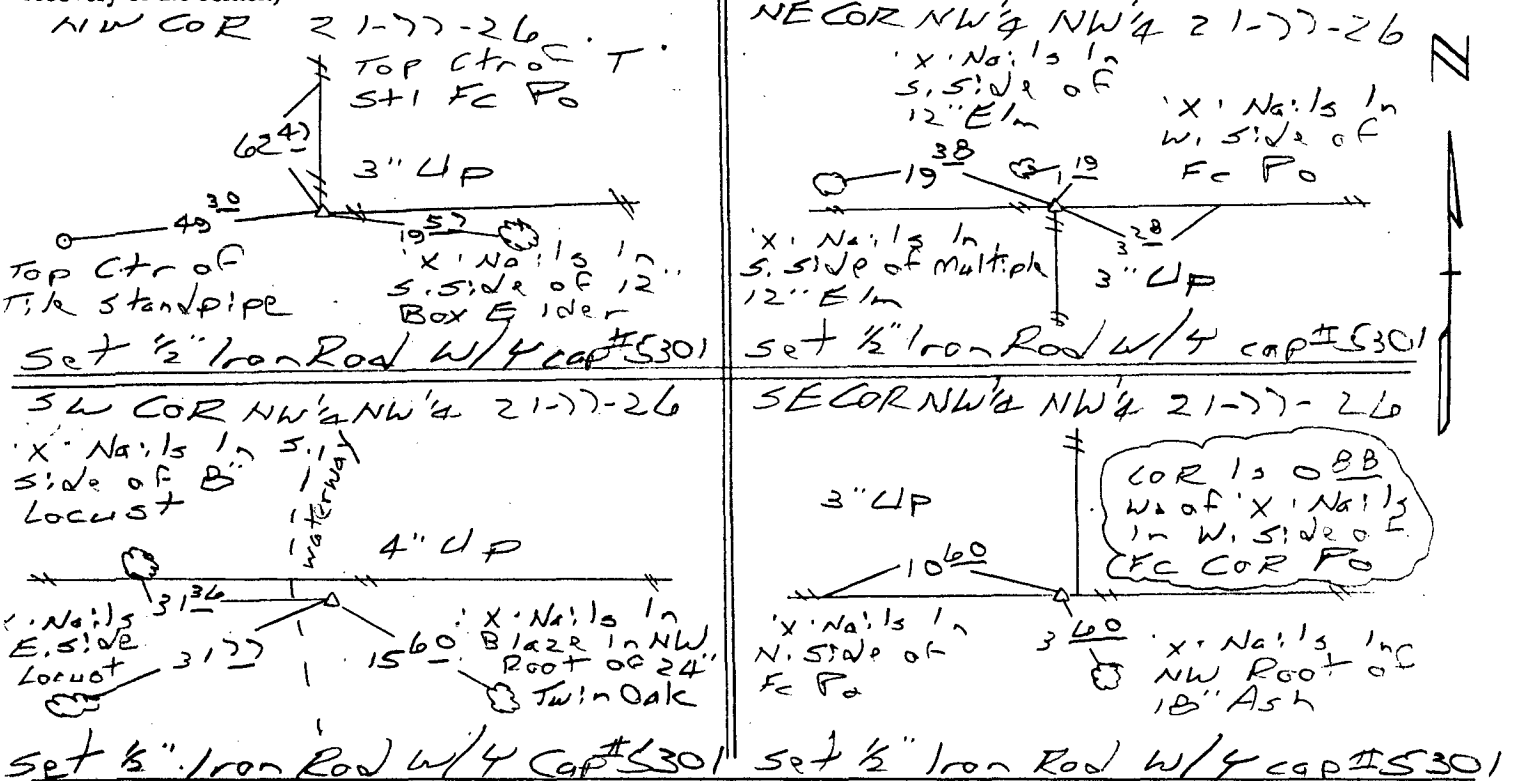 NW COR 21-77-26
Top Ctr of "T"
Stl Fc Po
62 47
3" Up
49 30
19 57
Top Ctr of
Tile Standpipe
'X' Nails In
S. Side of 12"
Box Elder
Set 1/2" Iron Rod W/Y cap #5301
NE COR NW 1/4 NW 1/4 21-77-26
'X' Nails In
S. Side of
12" Elm
'X' Nails In
W. Side of
Fc Po
19 38
1 19
3 28
'X' Nails In
S. Side of Multiple
12" Elm
3" Up
Set 1/2" Iron Rod W/Y cap #5301
N
SW COR NW 1/4 NW 1/4 21-77-26
'X' Nails In S.
Side of 8"
Locust
waterway
4" Up
31 36
'X' Nails
E. Side
Locust
31 77
15 60
'X' Nails In
Blaze in NW
Root of 24"
Twin Oak
Set 1/2" Iron Rod W/Y Cap #5301
SE COR NW 1/4 NW 1/4 21-77-26
3" Up
COR Is 0 88
W. of 'X' Nails
In W. Side of
Fc COR Po
10 60
'X' Nails In
N. Side of
Fc Po
3 60
'X' Nails In
NW Root of
18" Ash
Set 1/2" Iron Rod W/Y cap #5301